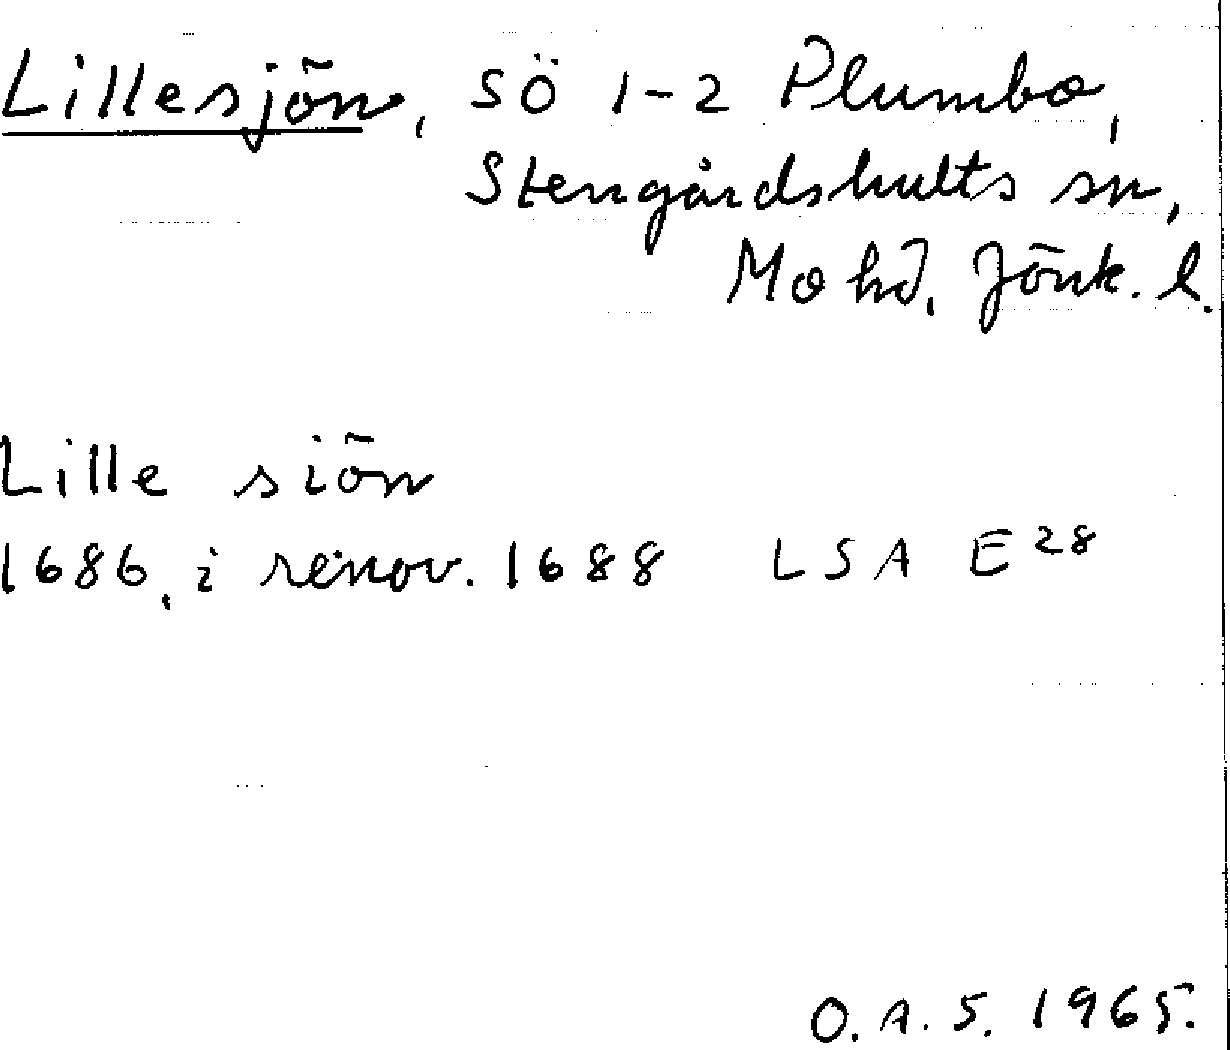 Lillesjön, SÖ 1-2 Plumbo,
Stengårdshults sn,
Mo hd, Jönk. l.
Lille siön
1686, i renov. 1688 LSA E28
O.A.S. 1965.